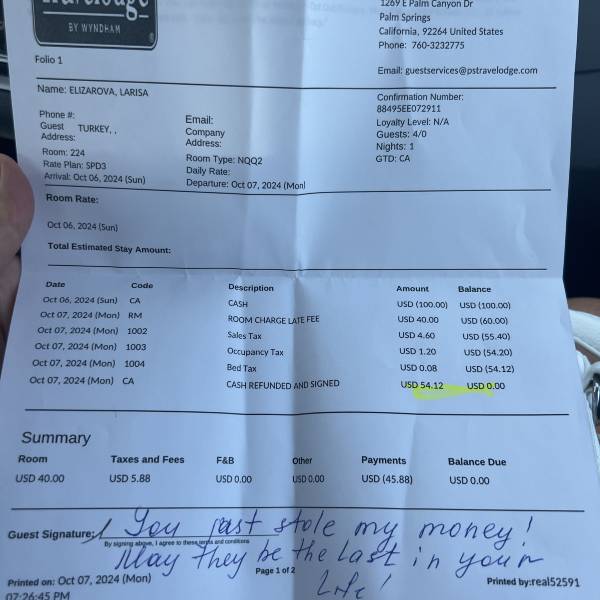 Travelodge
BY WYNDHAM
1269 E Palm Canyon Dr
Palm Springs
California, 92264 United States
Phone: 760-3232775
Email: guestservices@pstravelodge.com
Folio 1
Name: ELIZAROVA, LARISA
Confirmation Number:
88495EE072911
Phone #:
Guest TURKEY, ,
Address:
Email:
Company
Address:
Loyalty Level: N/A
Guests: 4/0
Nights: 1
GTD: CA
Room: 224
Rate Plan: SPD3
Arrival: Oct 06, 2024 (Sun)
Room Type: NQQ2
Daily Rate:
Departure: Oct 07, 2024 (Mon)
Room Rate:
Oct 06, 2024 (Sun)
Total Estimated Stay Amount:
Date Code Description Amount Balance
Oct 06, 2024 (Sun) CA CASH USD (100.00) USD (100.00)
Oct 07, 2024 (Mon) RM ROOM CHARGE LATE FEE USD 40.00 USD (60.00)
Oct 07, 2024 (Mon) 1002 Sales Tax USD 4.60 USD (55.40)
Oct 07, 2024 (Mon) 1003 Occupancy Tax USD 1.20 USD (54.20)
Oct 07, 2024 (Mon) 1004 Bed Tax USD 0.08 USD (54.12)
Oct 07, 2024 (Mon) CA CASH REFUNDED AND SIGNED USD 54.12 USD 0.00
Summary
Room Taxes and Fees F&B Other Payments Balance Due
USD 40.00 USD 5.88 USD 0.00 USD 0.00 USD (45.88) USD 0.00
Guest Signature: You just stole my money!
By signing above, I agree to these terms and conditions
May they be the last in your
Life!
Page 1 of 2
Printed on: Oct 07, 2024 (Mon)
07:26:45 PM
Printed by:real52591